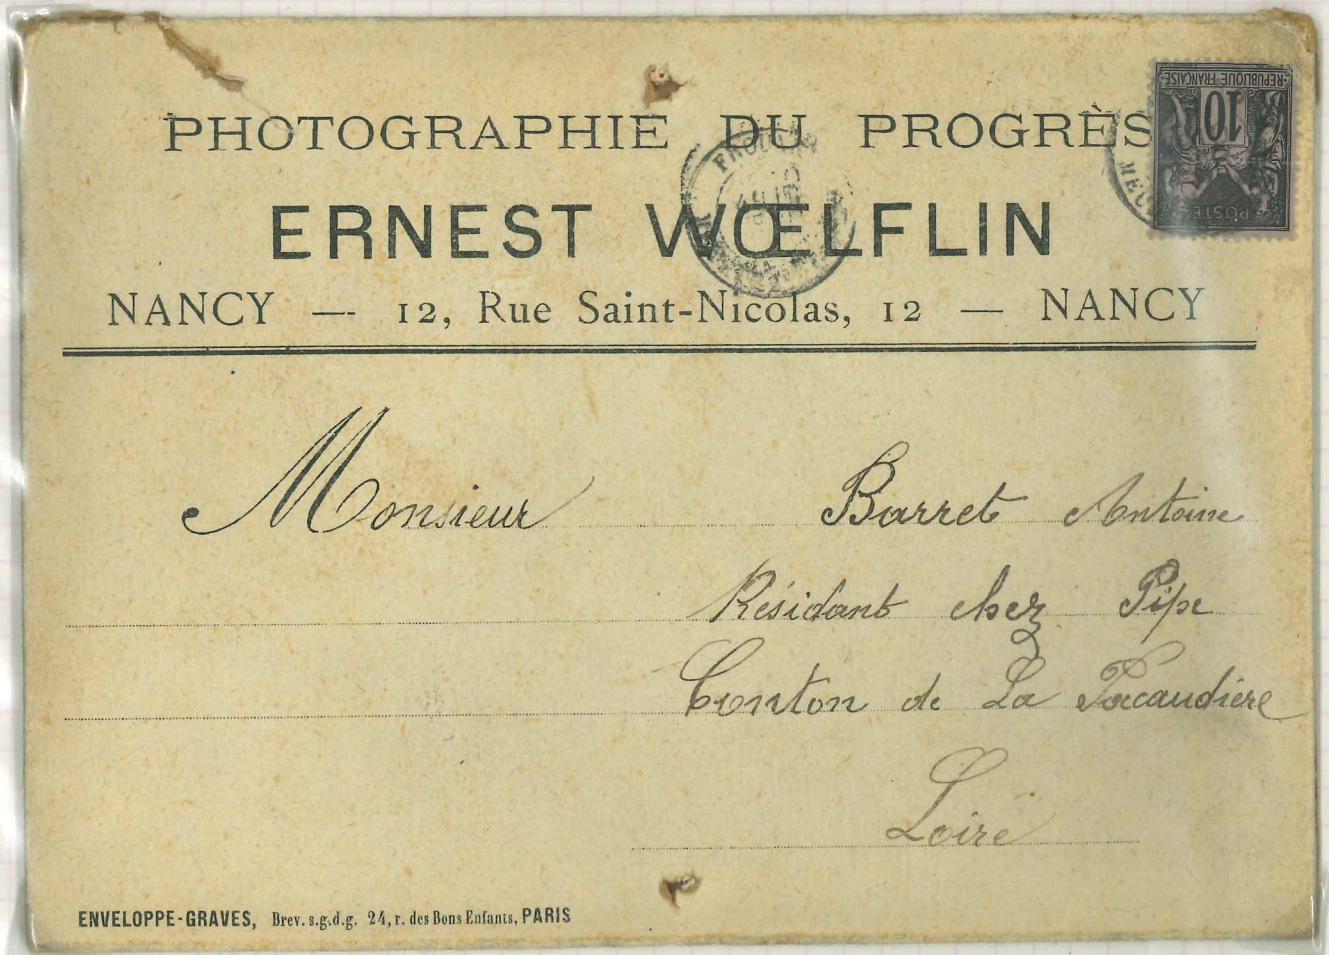 PHOTOGRAPHIE DU PROGRÈS
ERNEST WŒLFLIN
NANCY — 12, Rue Saint-Nicolas, 12 — NANCY
REPUBLIQUE FRANÇAISE
10
POSTES
Monsieur Barret Antoine
Résidant chez Pipe
Canton de La Pacaudière
Loire
ENVELOPPE-GRAVES, Brev. s.g.d.g. 24, r. des Bons Enfants, PARIS